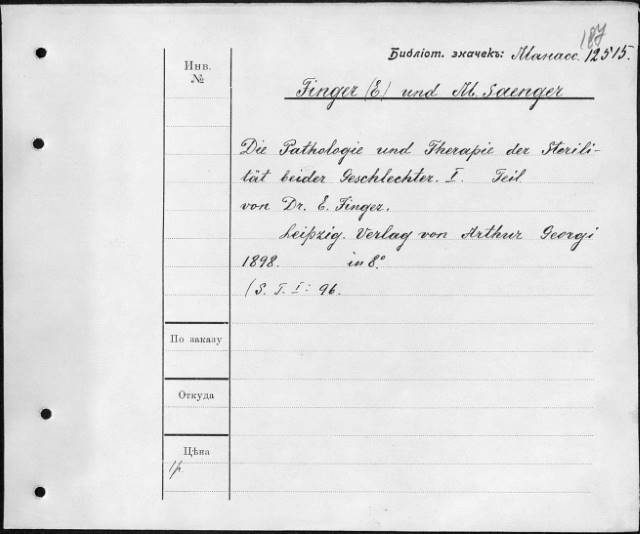 187
Библіот. значекъ: Манасс. 12515.
Инв.
№
Finger (E.) und M. Saenger
Die Pathologie und Therapie der Sterili-
tät beider Geschlechter. I. Teil.
von Dr. E. Finger.
Leipzig. Verlag von Arthur Georgi
1898. in 8°.
(S. T. I: 96.
По заказу
Откуда
Цѣна
1р.